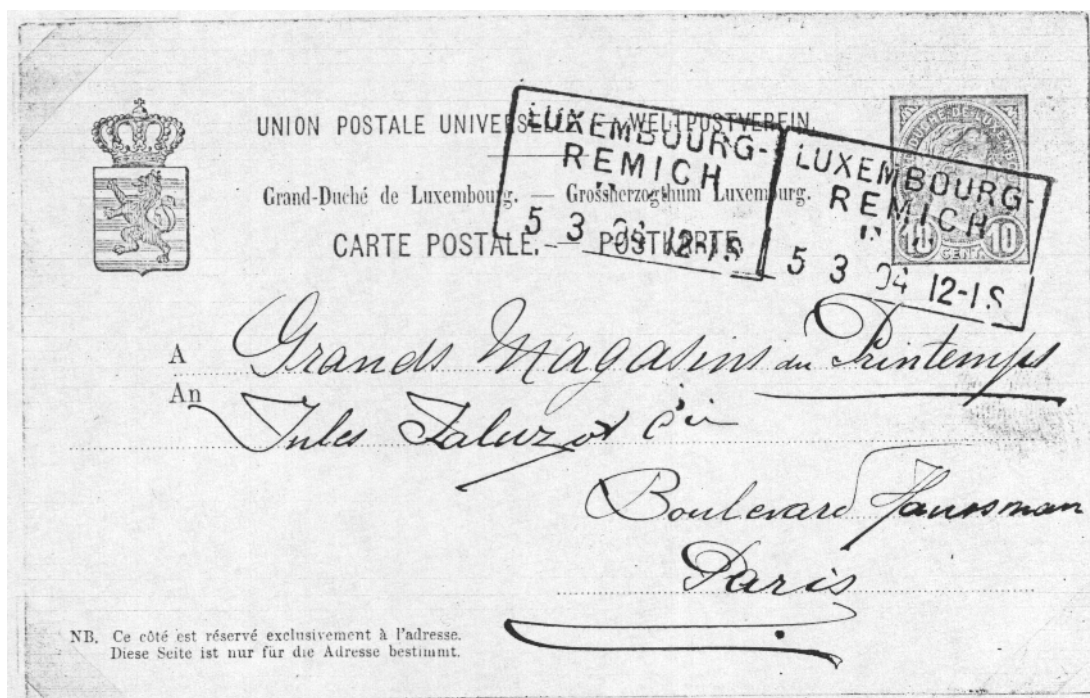 UNION POSTALE UNIVERSELLE. — WELTPOSTVEREIN.
Grand-Duché de Luxembourg. — Grossherzogthum Luxemburg.
CARTE POSTALE. — POSTKARTE.
LUXEMBOURG-
REMICH
5 3 04 12-1S
LUXEMBOURG-
REMICH
5 3 04 12-1S
10 CENT. 10
A Grands Magasins du Printemps
An
Jules Jaluzot & Cie
Boulevard Haussman
Paris
NB. Ce côté est réservé exclusivement à l'adresse.
Diese Seite ist nur für die Adresse bestimmt.